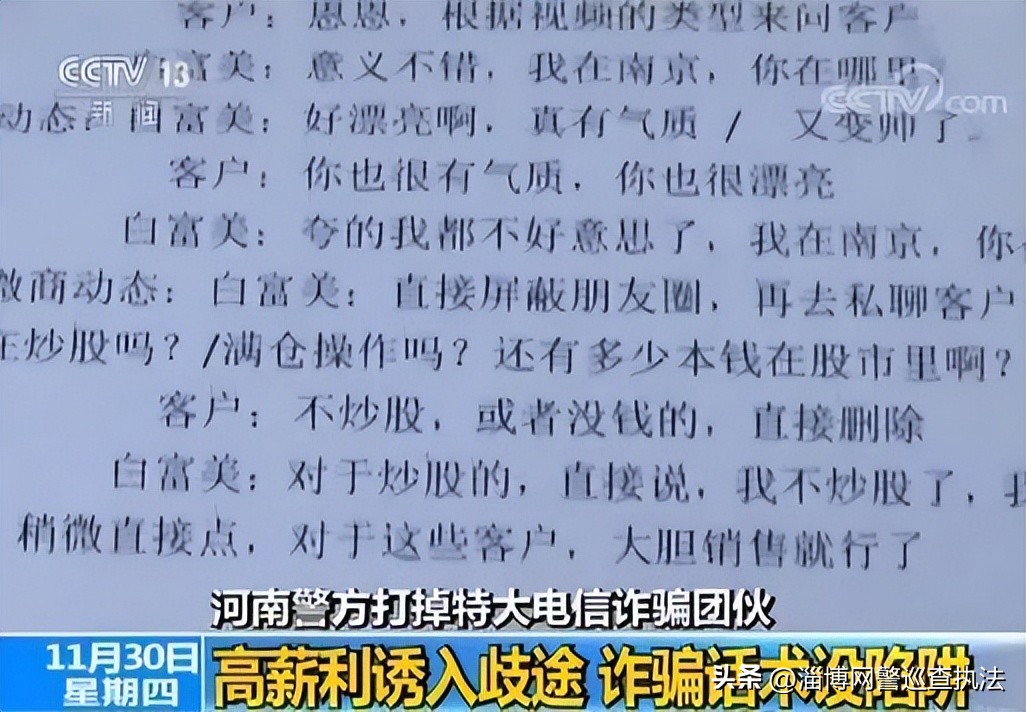 客户：恩恩，根据视频的类型来问客户
CCTV 13
新闻
富美：意义不错，我在南京，你在哪里
CCTV.com
动态：白富美：好漂亮啊，真有气质 / 又变帅了
客户：你也很有气质，你也很漂亮
白富美：夸的我都不好意思了，我在南京，你
微商动态：白富美：直接屏蔽朋友圈，再去私聊客户
在炒股吗？/满仓操作吗？还有多少本钱在股市里啊？
客户：不炒股，或者没钱的，直接删除
白富美：对于炒股的，直接说，我不炒股了，
稍微直接点，对于这些客户，大胆销售就行了
河南警方打掉特大电信诈骗团伙
11月30日
星期四
高薪利诱入歧途 诈骗话术设陷阱
头条 @淄博网警巡查执法